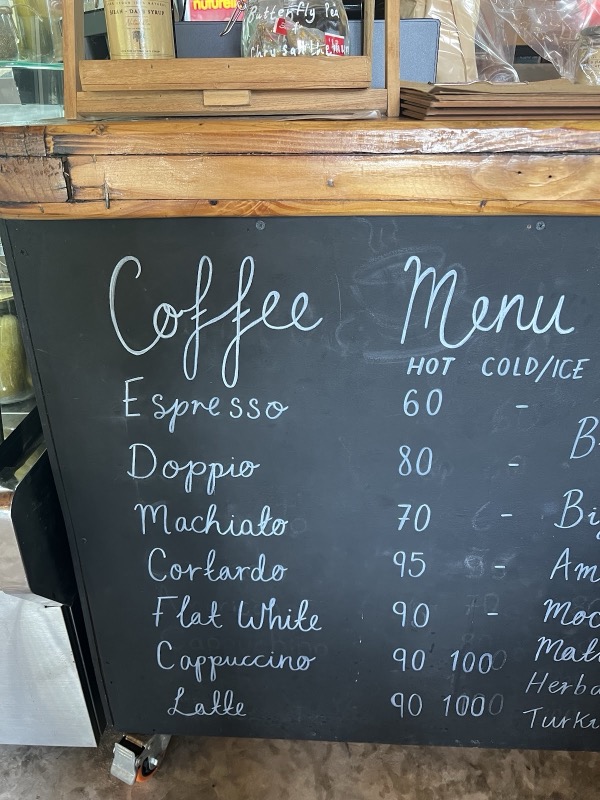 Butterfly Pea
+
Coffee Menu
HOT COLD/ICE
Espresso 60 -
Doppio 80 -
Machiato 70 -
Cortardo 95 -
Flat White 90 -
Cappuccino 90 100
Latte 90 100